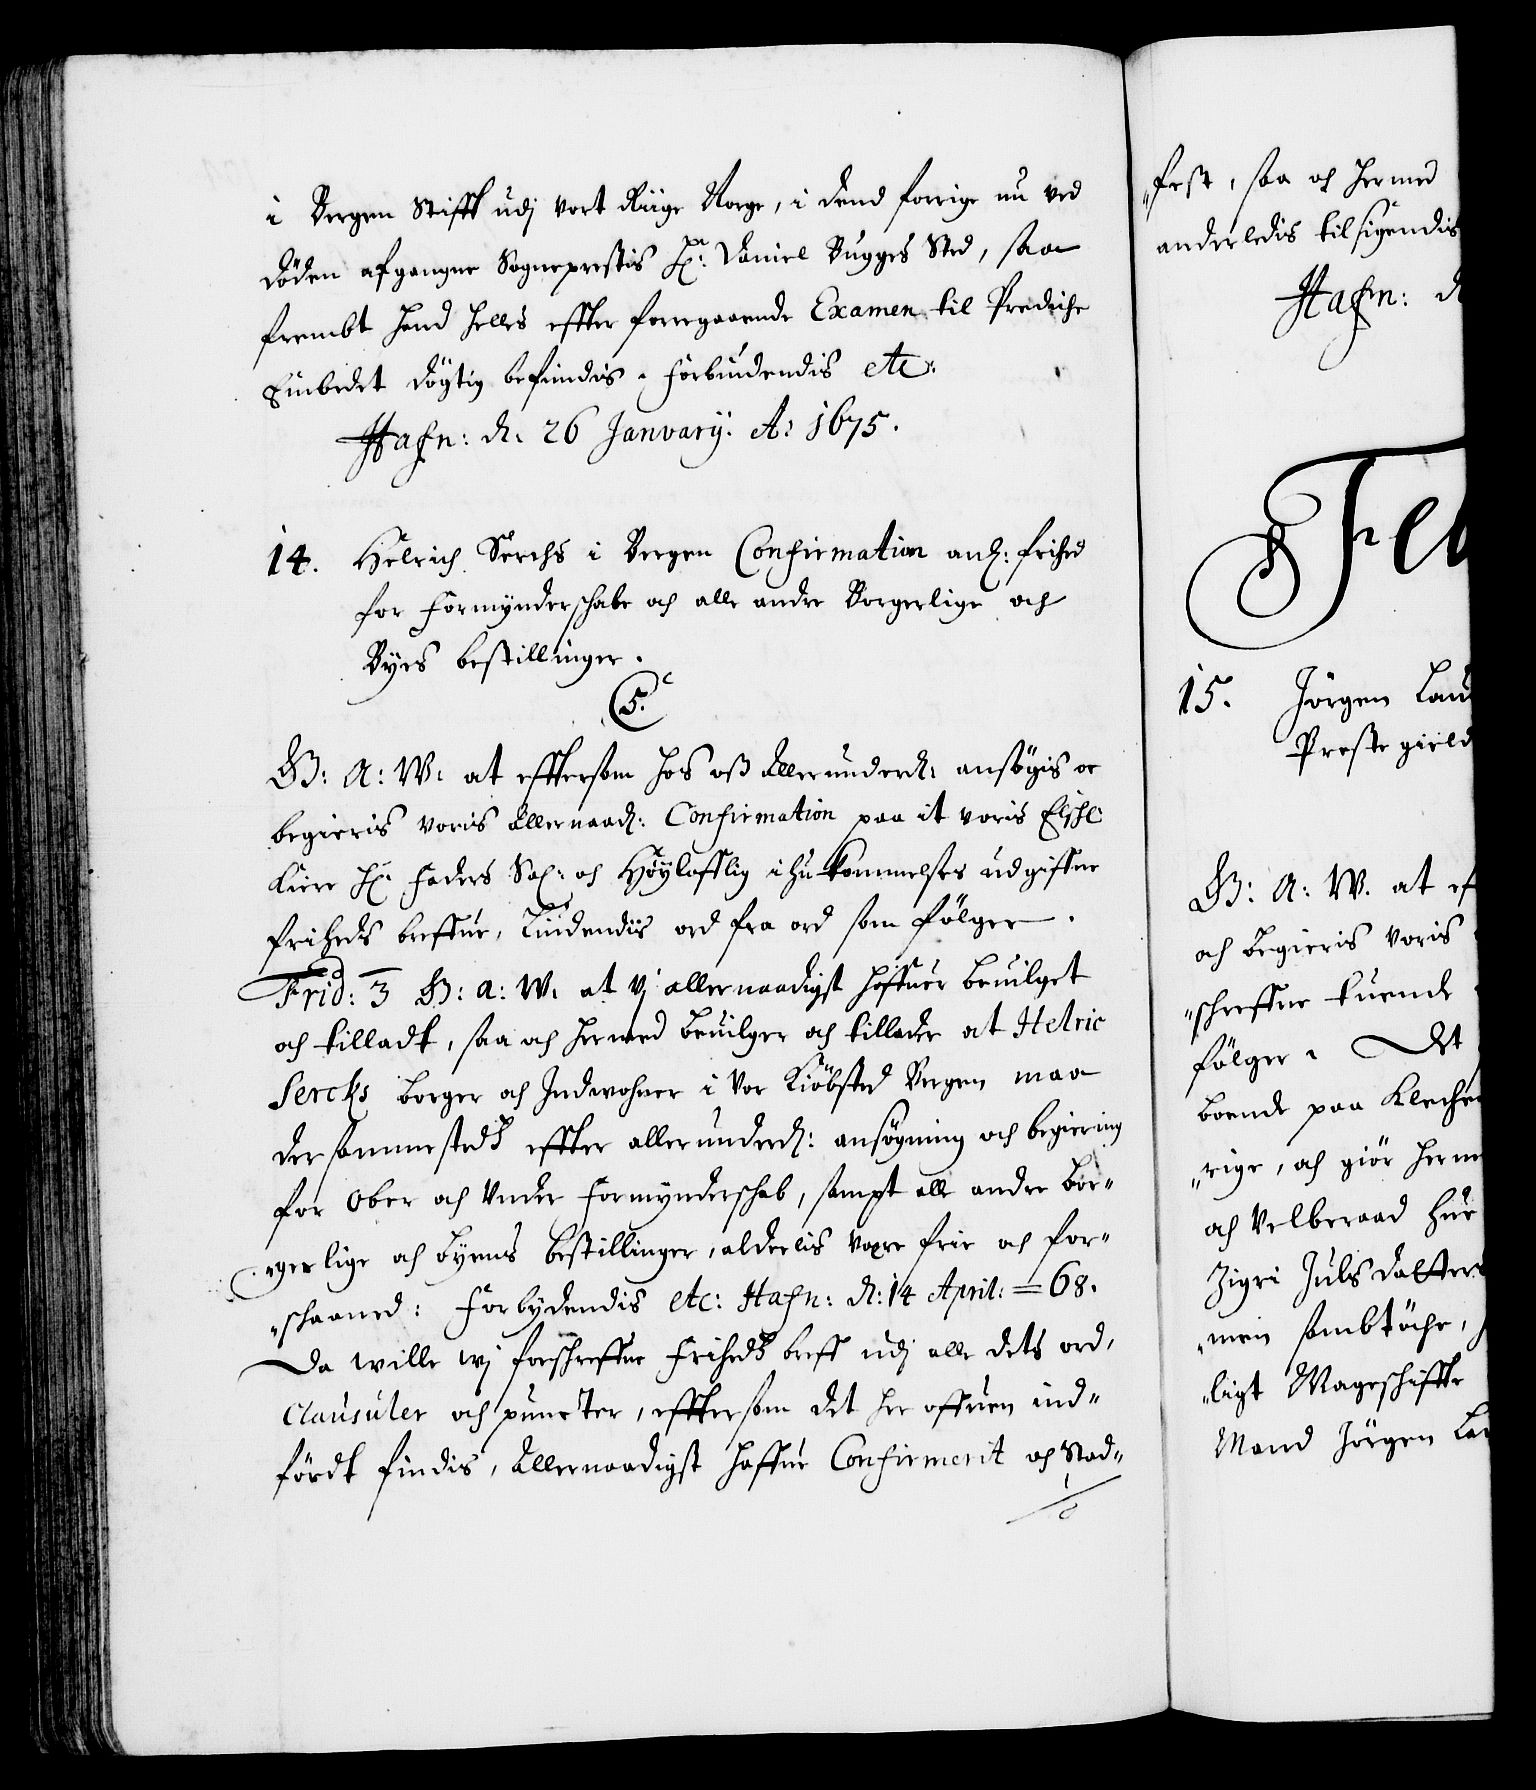 i Bergen Stifft udj vort Riige Norge, i dend forrige nu ved
döden afgangne Sogneprestis Hr: Daniel Bugges Sted, saa
frembt hand helles effter foregaaende Examen til Prediche
Embedet döytig befindis. Forbiudendis etc:
Hafn: d: 26 Januarij. A: 1675.
14. Helrich Serchs i Bergen Confirmation anl: frihed
for Formÿnderschabe och alle andre Borgerlige och
Byes bestillinger.
C. 5.
G: A: W: at efftersom hos oß allerunderd: ansögis oc
begieris voris allernaad: Confirmation paa it voris Elschl:
kiere Hr: Faders Sal: och Höylofflig ihukommelses udgiffne
friheds breffue, Liudendis ord fra ord som fölger.
Frid: 3 G: A: W: at Vj allernaadigst haffuer beuilget
och tilladt, saa och hermed beuilger och tillader at Helric
Sercks borger och Indwohner i Vor Kiöbsted Bergen maa
dersammesteds effter allerunderd: ansögning och begiering
for Ober och Under Formynderschab, sampt alle andre bor„
„gerlige och byens bestillinger, alderlis vare frie och for„
„schaaned: Forbydendis etc: Hafn: d: 14 April: = 68.
Da wille wj forschreffne Friheds breff udj alle dets ord,
Clausuler och puncter, efftersom det her offuen ind„
fördt findis, allernaadigst haffue Confirmerit och Stad„
„fest, saa och hermed
anderledis tilsigendis
Hafn: d
Feb
15. Jörgen Lau
Preste gield
G: A: W. at ef
och begieris voris
„schreffne tuende
fölger. Det
boende paa
„rige, och giör herme
och Velberaad hue
Zigri Juls datters
„men sambtöche,
„ligt Mageschiffte
Mand Jörgen Lau